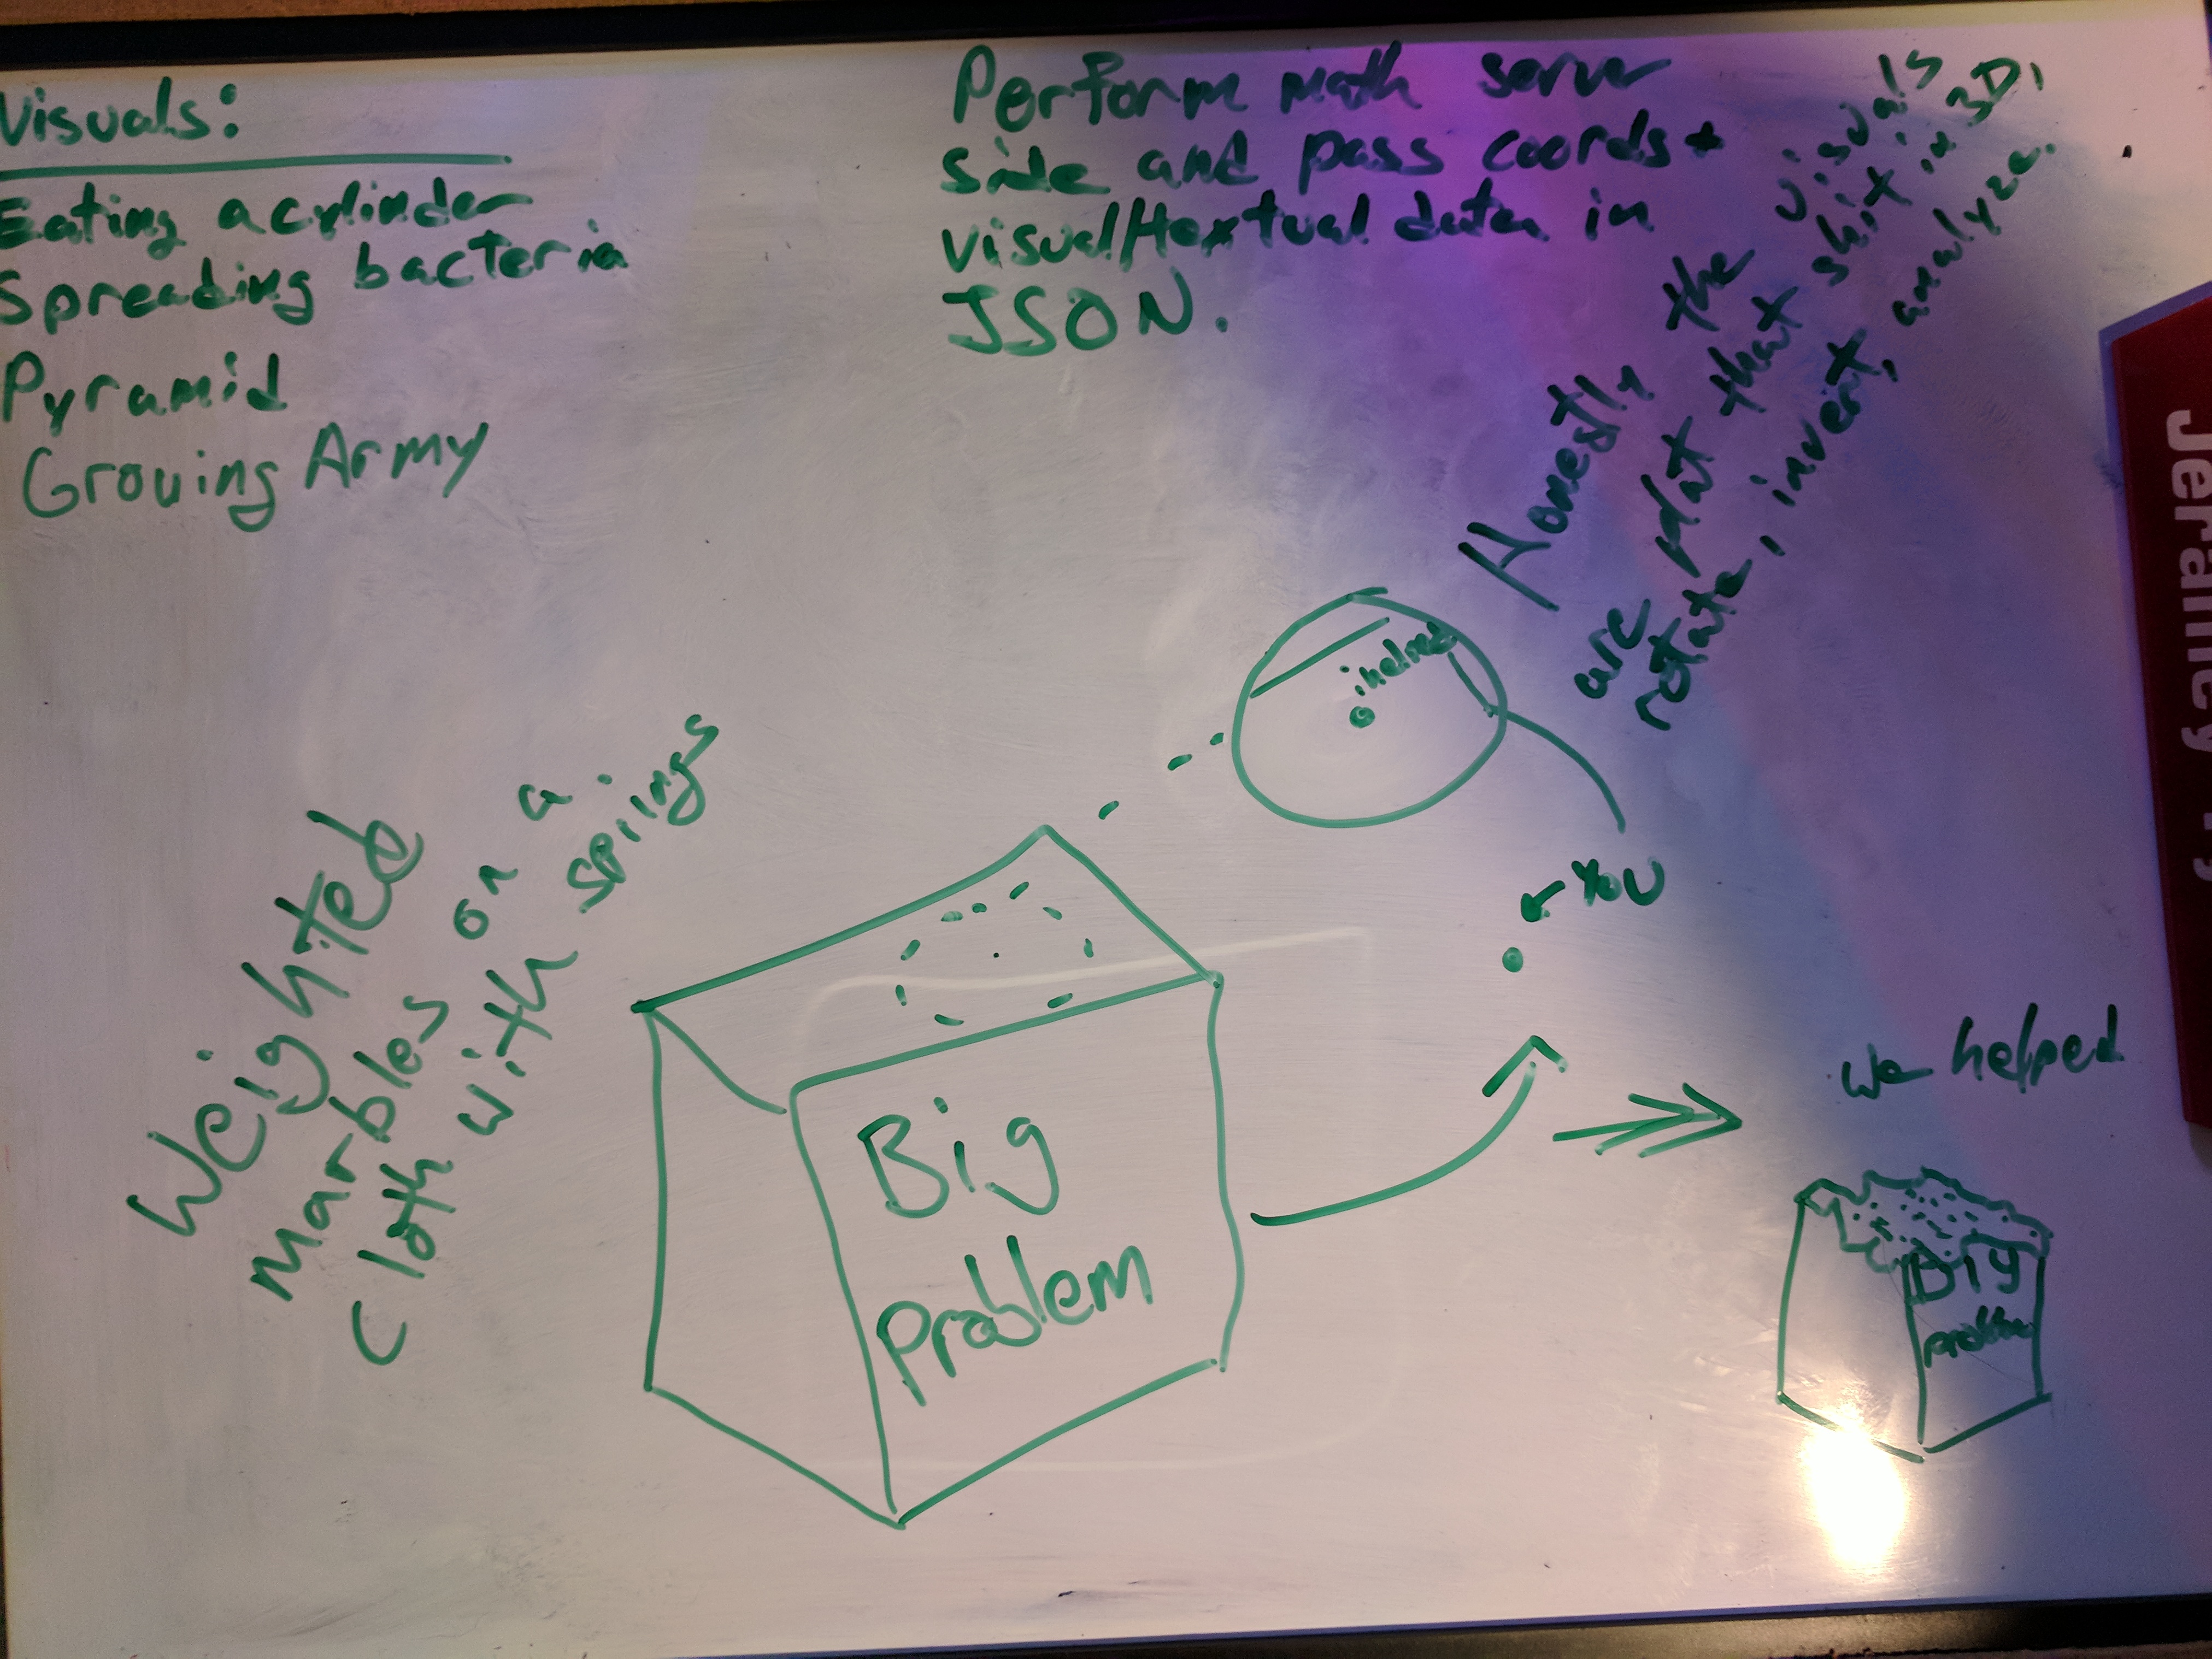 Visuals:
Eating a cylinder
Spreading bacteria
Pyramid
Growing Army
Perform math server
side and pass coords +
visual/textual data in
JSON.
Honestly the visuals
are plot that shit in 3D,
rotate, invert, analyze.
i helped
← YOU
Weighted
marbles on a
cloth with spings
Big
Problem
We helped
Big
problem